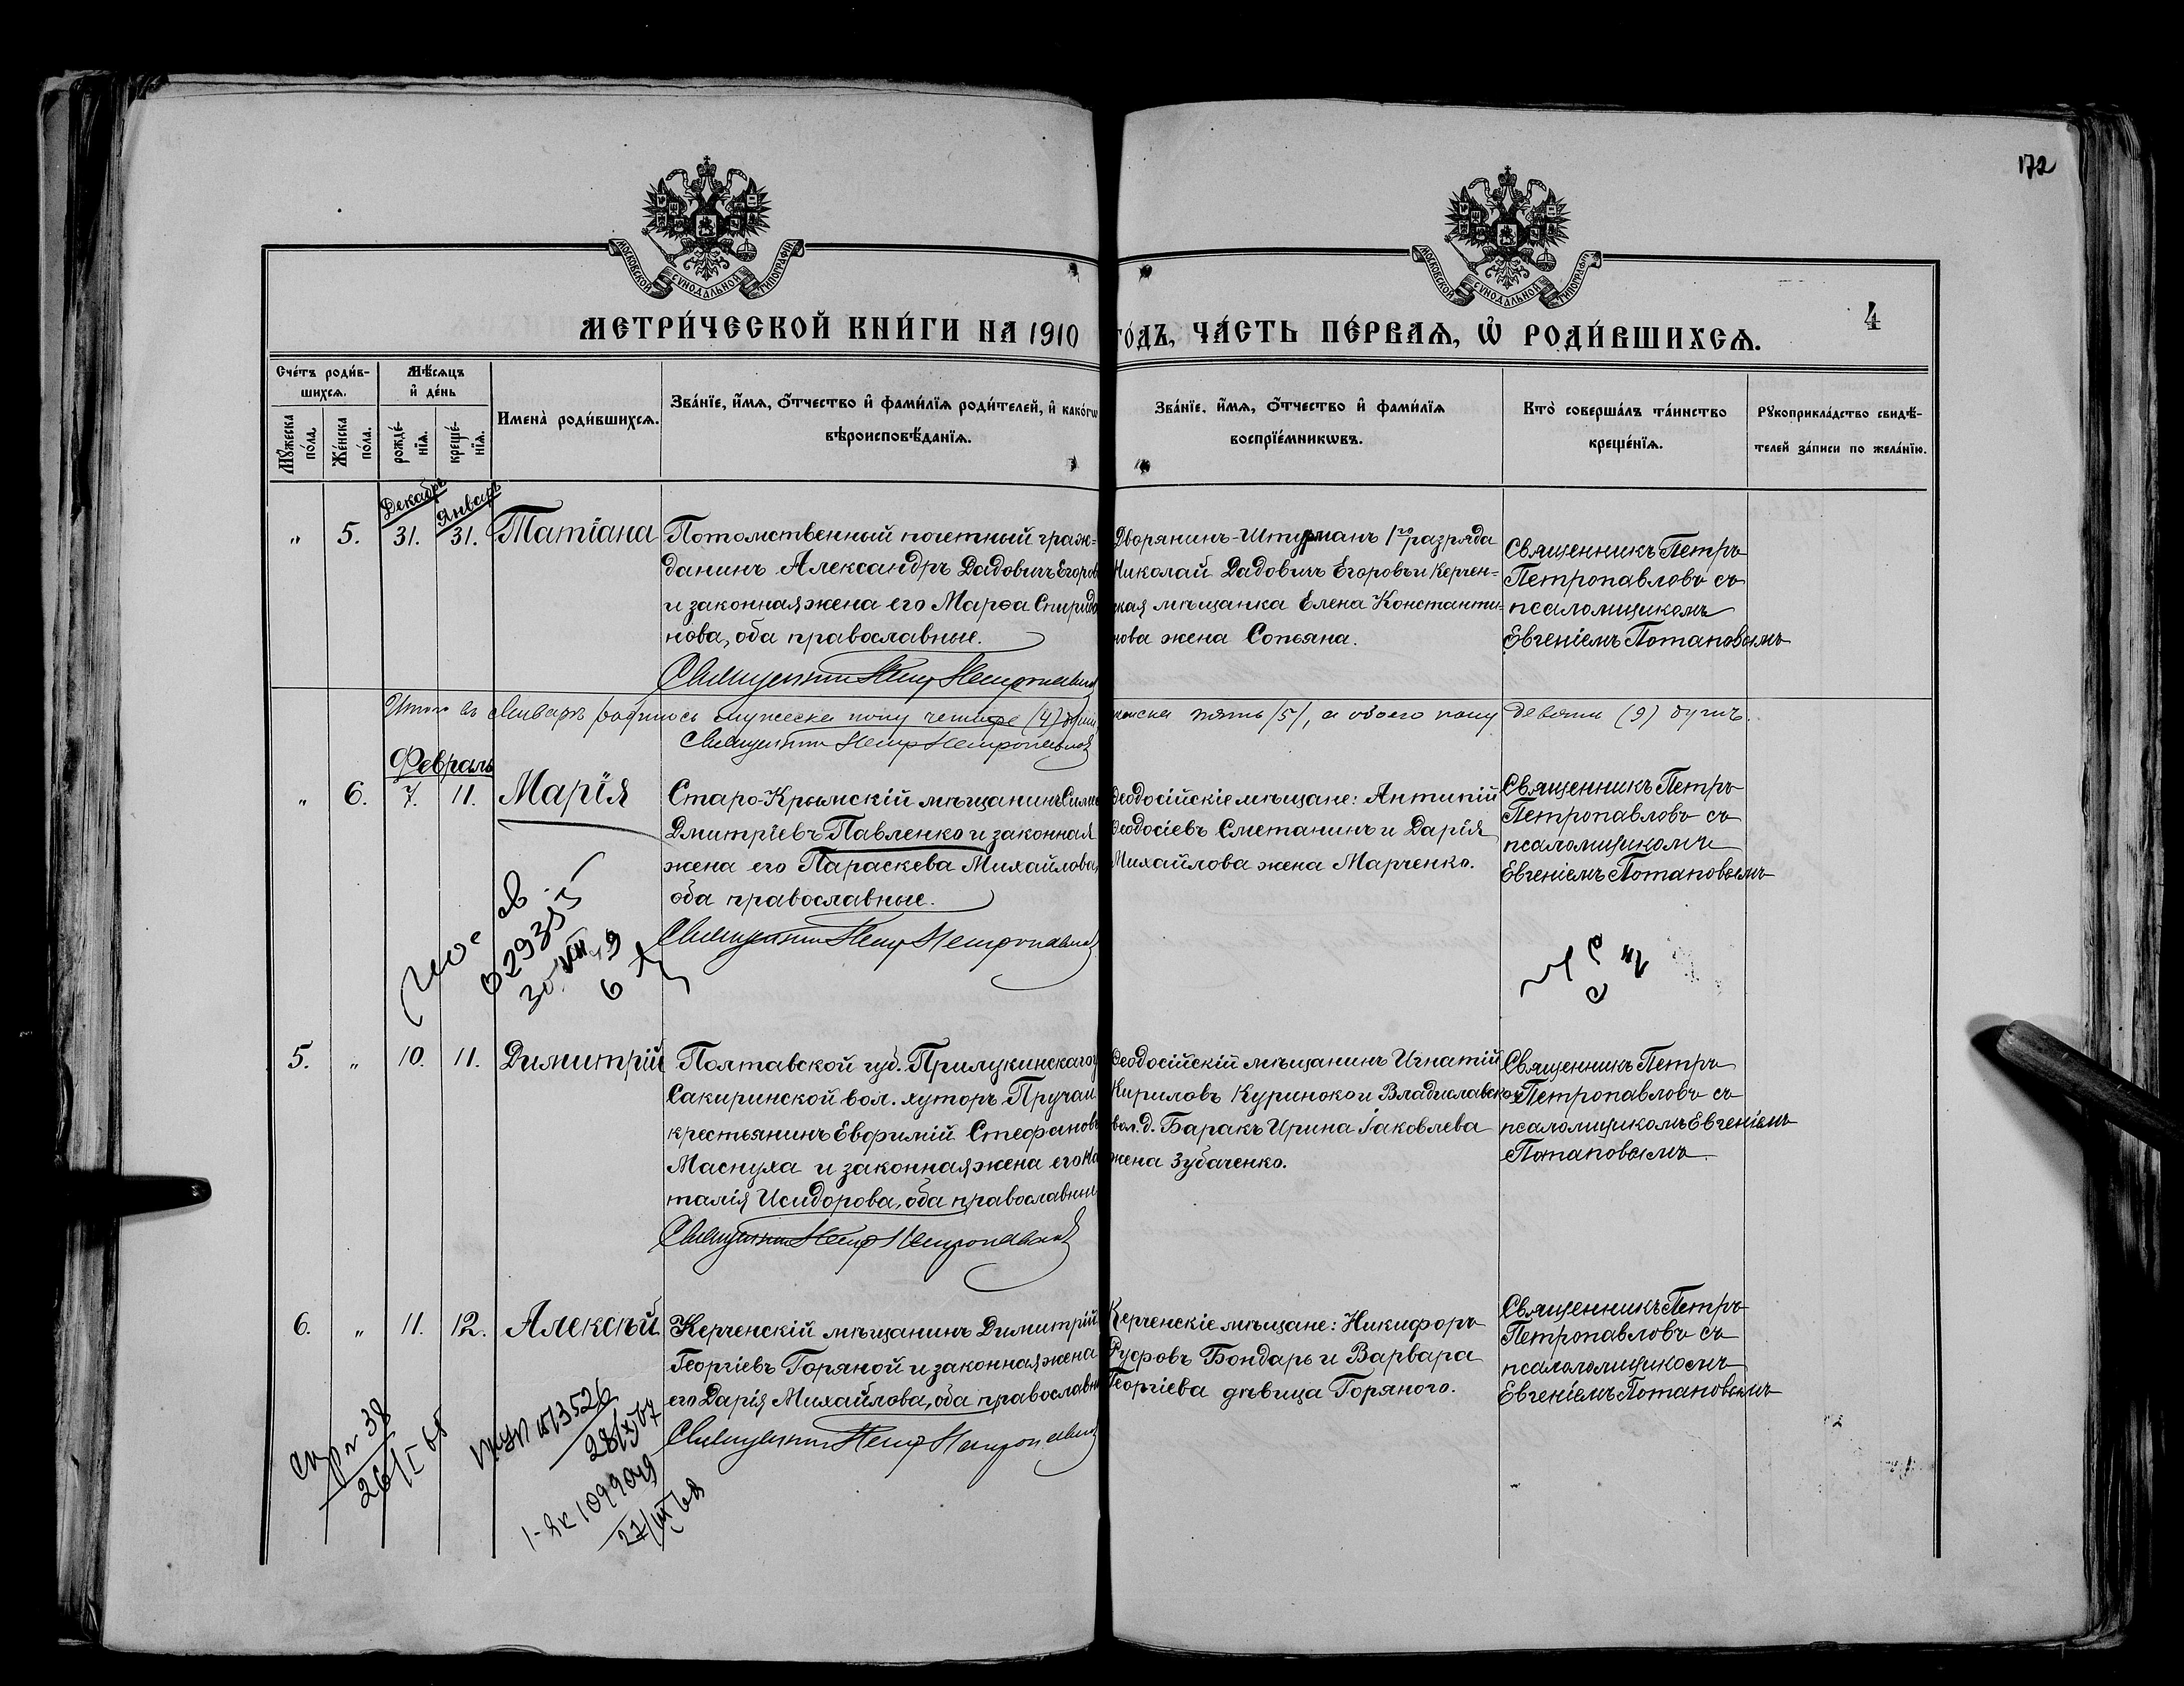 172
МОСКОВСКОЙ СУНОДАЛЬНОЙ ТИПОГРАФІИ
МОСКОВСКОЙ СУНОДАЛЬНОЙ ТИПОГРАФІИ
4
МЕТРИ́ЧЕСКОЙ КНИ́ГИ НА 1910 ГО́ДЪ, ЧА́СТЬ ПЕ́РВАѦ, Ѡ҆ РОДИ́ВШИХСѦ.
Сче́тъ роди́в-
шихсѧ.
Мѣ́сѧцъ
и҆ де́нь
Мꙋ́жеска
по́ла.
Же́нска
по́ла.
рожде́-
нїѧ.
креще́-
нїѧ.
Имена̀ роди́вшихсѧ.
Зва́нїе, и҆́мѧ, ѻ҆́тчество и҆ фами́лїѧ роди́телей, и҆ како́гѡ
вѣроисповѣ́данїѧ.
Зва́нїе, и҆́мѧ, ѻ҆́тчество и҆ фами́лїѧ
воспрїе́мникѡвъ.
Кто̀ соверша́лъ та́инство
креще́нїѧ.
Рꙋкоприкла́дство свидѣ́-
телей за́писи по жела́нїю.
Декабрь
Январь
„ 5. 31. 31. Татіана
Потомственный почетный граж-
данинъ Александръ Дадовичъ Егоров
и законная жена его Марѳа Спиридо
нова, оба православные.
Священникъ Петръ Петропавловъ
Дворянинъ-Штурманъ 1го разряда
Николай Дадовичъ Егоровъ и Керчен-
ская мѣщанка Елена Константи-
нова жена Сопьяна.
Священникъ Петръ
Петропавловъ съ
псаломщикомъ
Евгеніемъ Потаповымъ
Итого въ Январѣ родилось мужеска полу четыре (4) души женска пять /5/, а обоего полу девять (9) душъ.
Священникъ Петръ Петропавловъ
Февраль
„ 6. 7. 11. Марія
Старо-Крымскій мѣщанинъ
Дмитріевъ Павленко и законная
жена его Параскева Михайлова,
оба православные.
Священникъ Петръ Петропавловъ
Ѳеодосійскіе мѣщане: Антипій
Ѳеодосіевъ Сметанинъ и Дарія
Михайлова жена Марченко.
Священникъ Петръ
Петропавловъ съ
псаломщикомъ
Евгеніемъ Потаповымъ
5. „ 10. 11. Димитрій
Полтавской губ. Прилукинскаго у
Сакиринской вол. хуторъ Пручаи
крестьянинъ Евфимій Стефановъ
Маснуха и законная жена его На
талія Исидорова, оба православные
Священникъ Петръ Петропавловъ
Ѳеодосійскій мѣщанинъ Игнатій
Кириловъ Куринокои Владиславской
вол. д. Баракъ Ирина Іаковлева
жена Зубаченко.
Священникъ Петръ
Петропавловъ съ
псаломщикомъ Евгеніемъ
Потаповымъ
6. „ 11. 12. Алексѣй
Керченскій мѣщанинъ Димитрій
Георгіевъ Горяной и законная жена
его Дарія Михайлова, оба православн
Священникъ Петръ Петропавловъ
Керченскіе мѣщане: Никифоръ
Руфовъ Бондарь и Варвара
Георгіева дѣвица Горяного.
Священникъ Петръ
Петропавловъ съ
псаломщикомъ
Евгеніемъ Потаповымъ